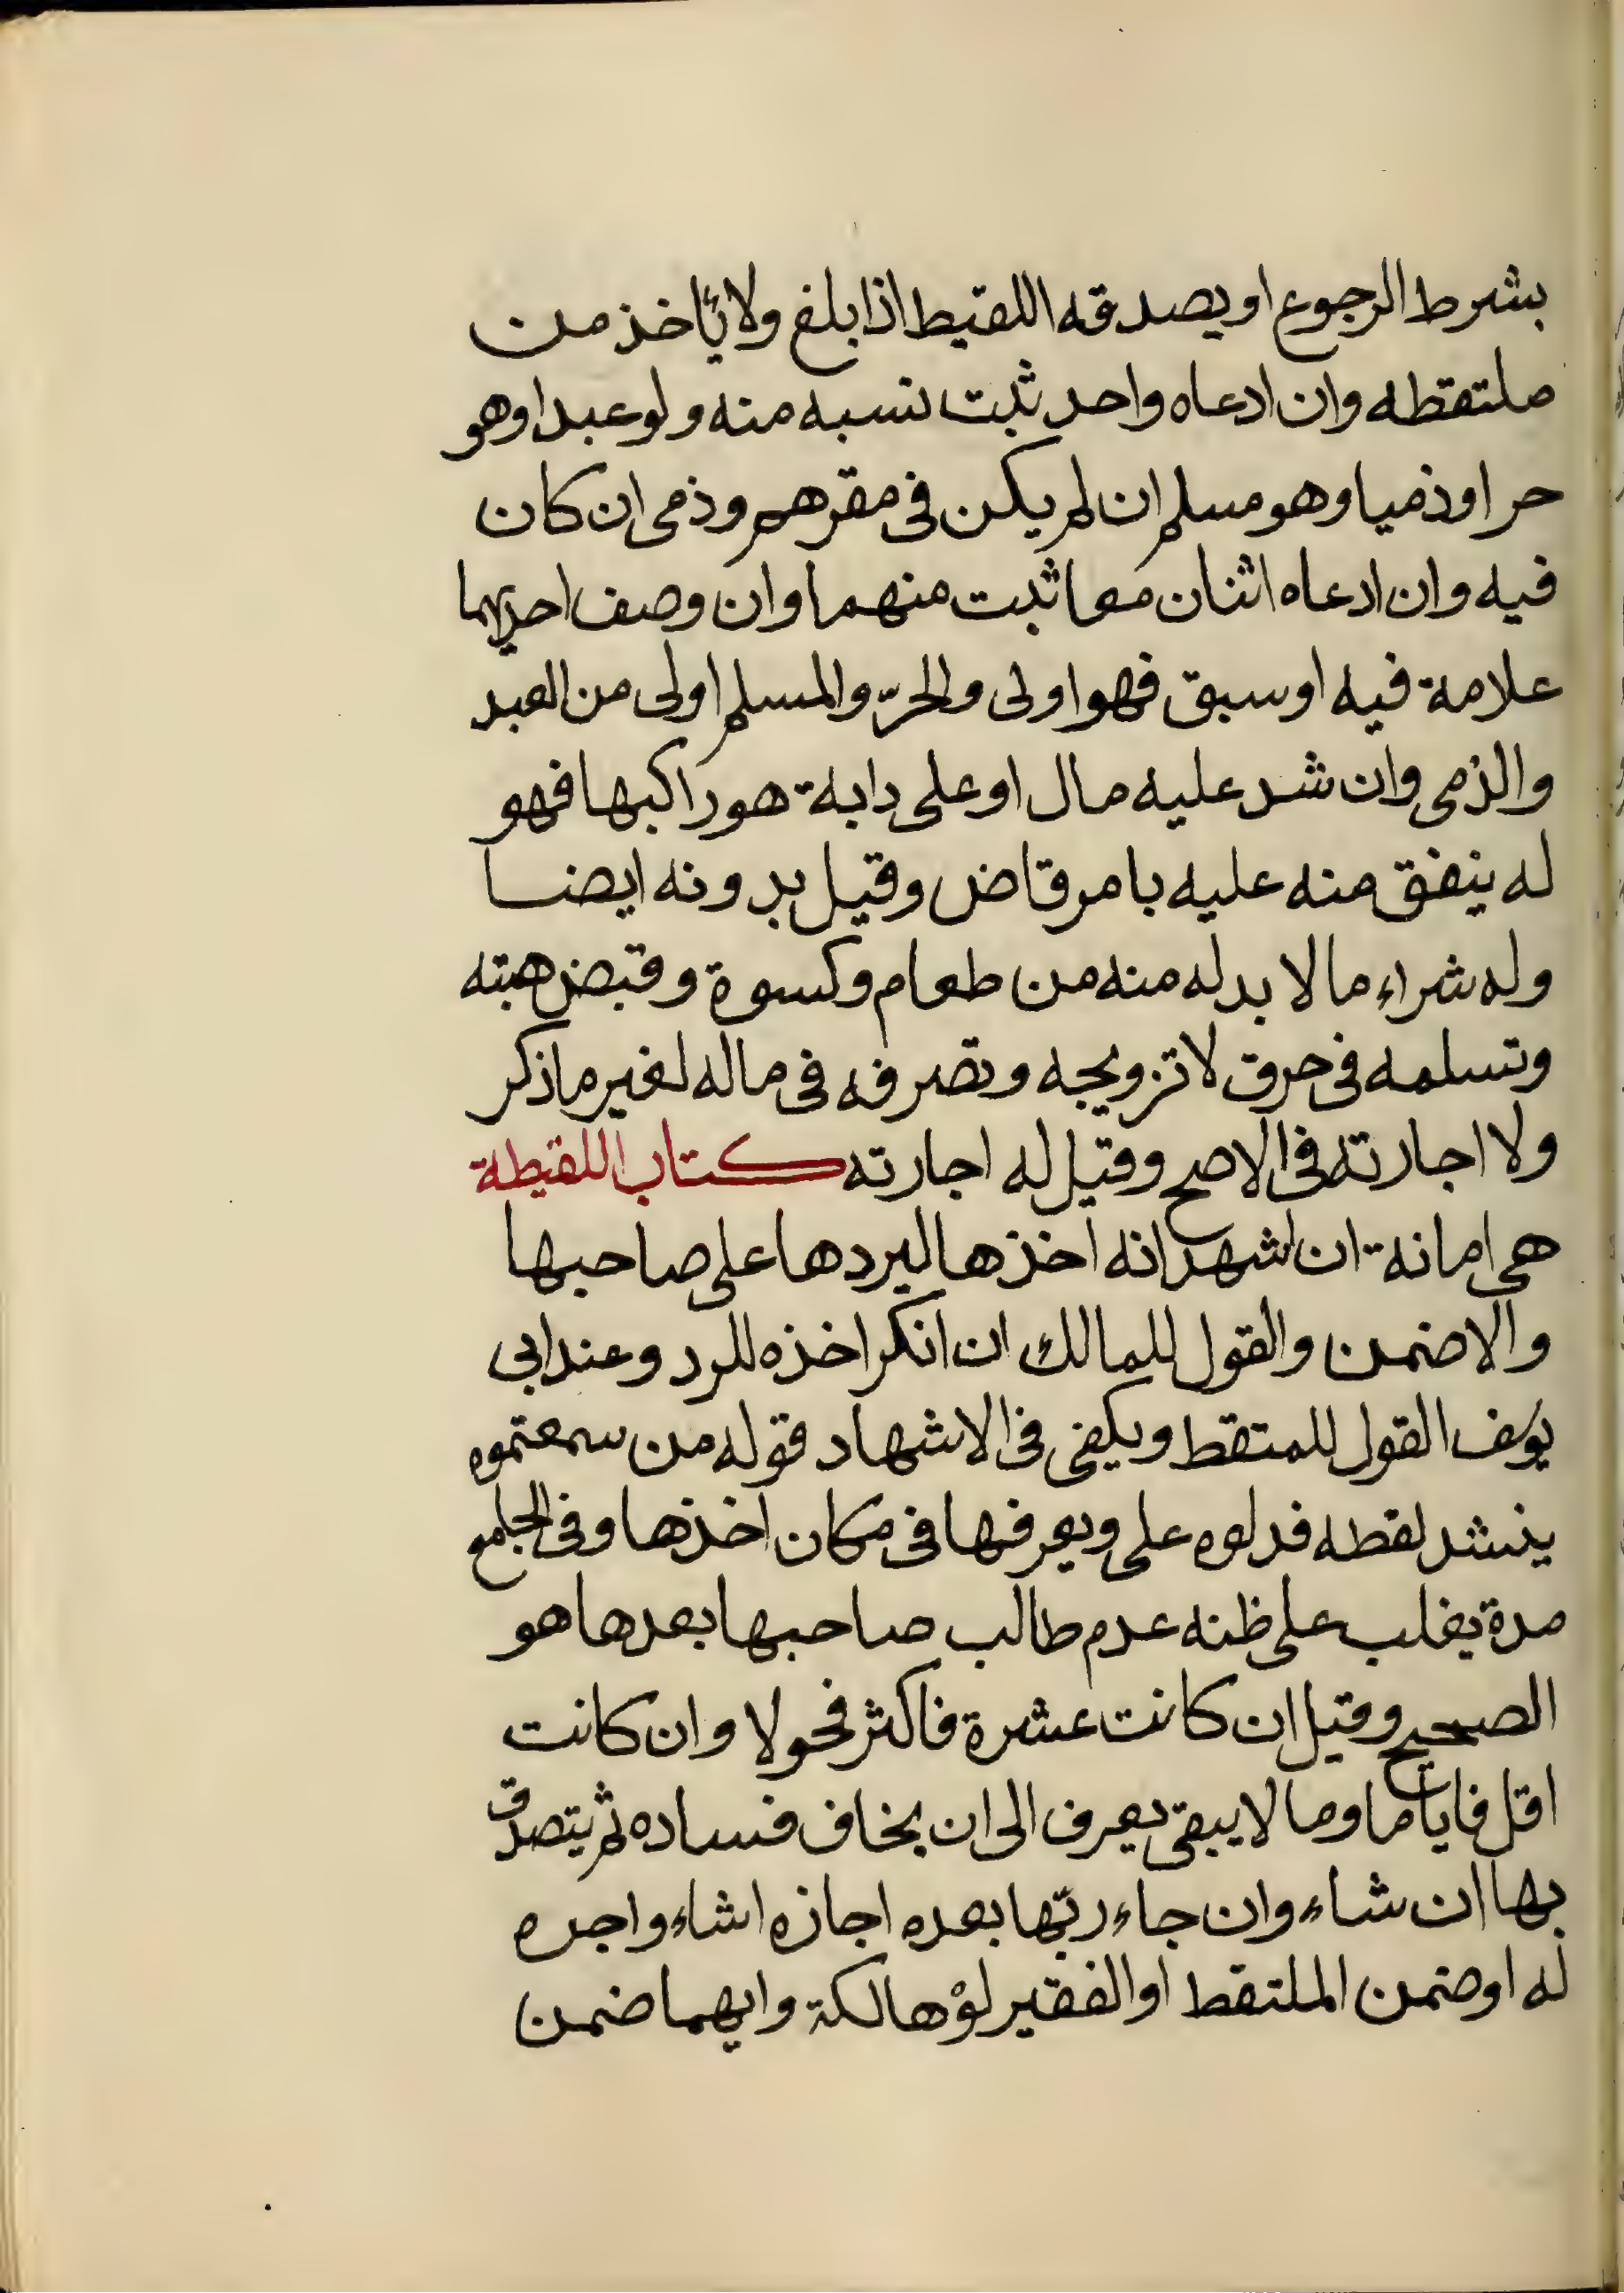 بشرط الرجوع او يصدقه اللقيط اذا بلغ ولا يأخذ من
ملتقطه وان ادعاه واحد ثبت نسبه منه ولو عبدا وهو
حر او ذميا وهو مسلم ان لم يكن فى مقرهم وذمى ان كان
فيه وان ادعاه اثنان معا ثبت منهما وان وصف احدهما
علامة فيه او سبق فهو اولى والحرّ والمسلم اولى من العبد
والذمى وان شد عليه مال او على دابة هو راكبها فهو
له ينفق منه عليه بامر قاض وقيل بدونه ايضا
وله شراء ما لا بد له منه من طعام وكسوة وقبض هبته
وتسلمه فى حرق لا تزويجه وتصرفه فى ماله لغير ما ذكر
ولا اجارته فى الاصح وقيل له اجارته كتاب اللقيطة
هى امانة ان اشهد انه اخذها ليردها على صاحبها
والا ضمن والقول للمالك ان انكر اخذه للرد وعند ابى
يوسف القول للمتقط ويكفى فى الاشهاد قوله من سمعتموه
ينشد لقطه فدلوه على ويعرفها فى مكان اخذها وفى الجامع
مدة يغلب على ظنه عدم طالب صاحبها بعدها هو
الصحيح وقيل ان كانت عشرة فاكثر فحولا وان كانت
اقل فاياما وما لا يبقى يعرف الى ان يخاف فساده ثم يتصدق
بها ان شاء وان جاء ربّها بعده اجازه اشاء واجره
له او ضمن الملتقط او الفقير لو هالكة وايهما ضمن